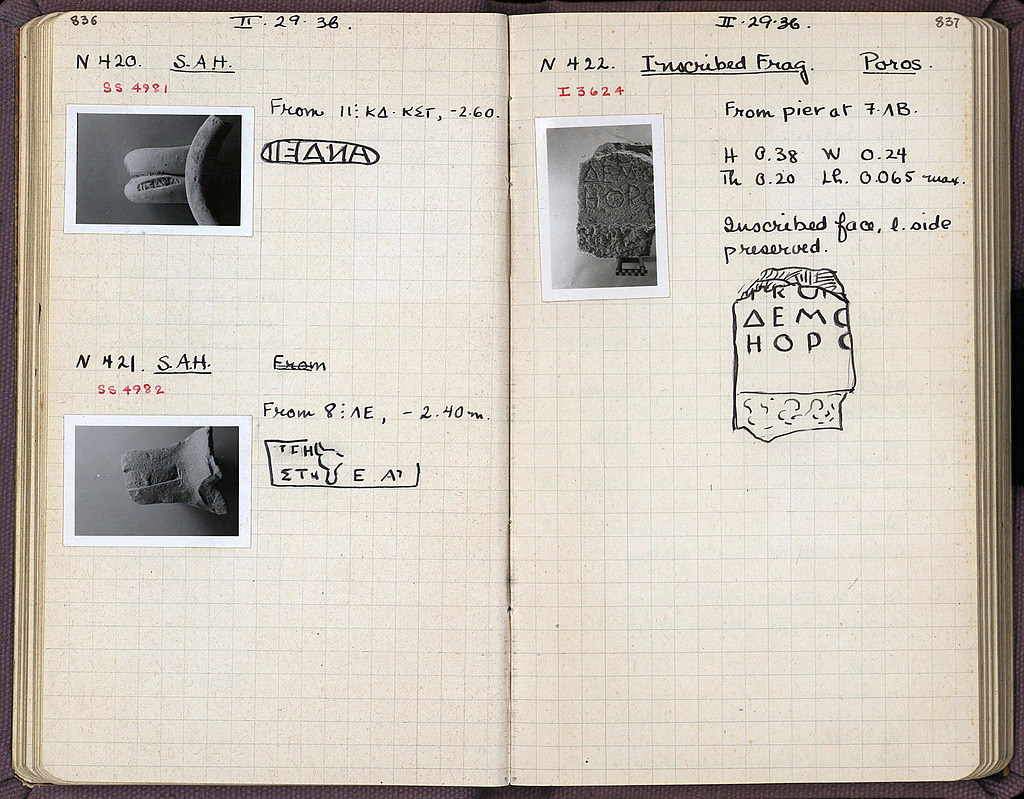 836
II · 29 · 36.
N 420. S.A.H.
SS 4981
From 11: ΚΔ · ΚΣΤ, -2.60.
N 421. S.A.H.
From
SS 4982
From 8: ΛΕ, - 2.40 m.
ΣΤΗ Ε
II · 29 · 36.
837
N 422. Inscribed Frag. Poros.
I 3624
From pier at 7·ΛΒ.
H 0.38 W 0.24
Th 0.20 Lh. 0.065 max.
Inscribed face, l. side
preserved.
ΔΕΜΟ
ΗΟΡΟ